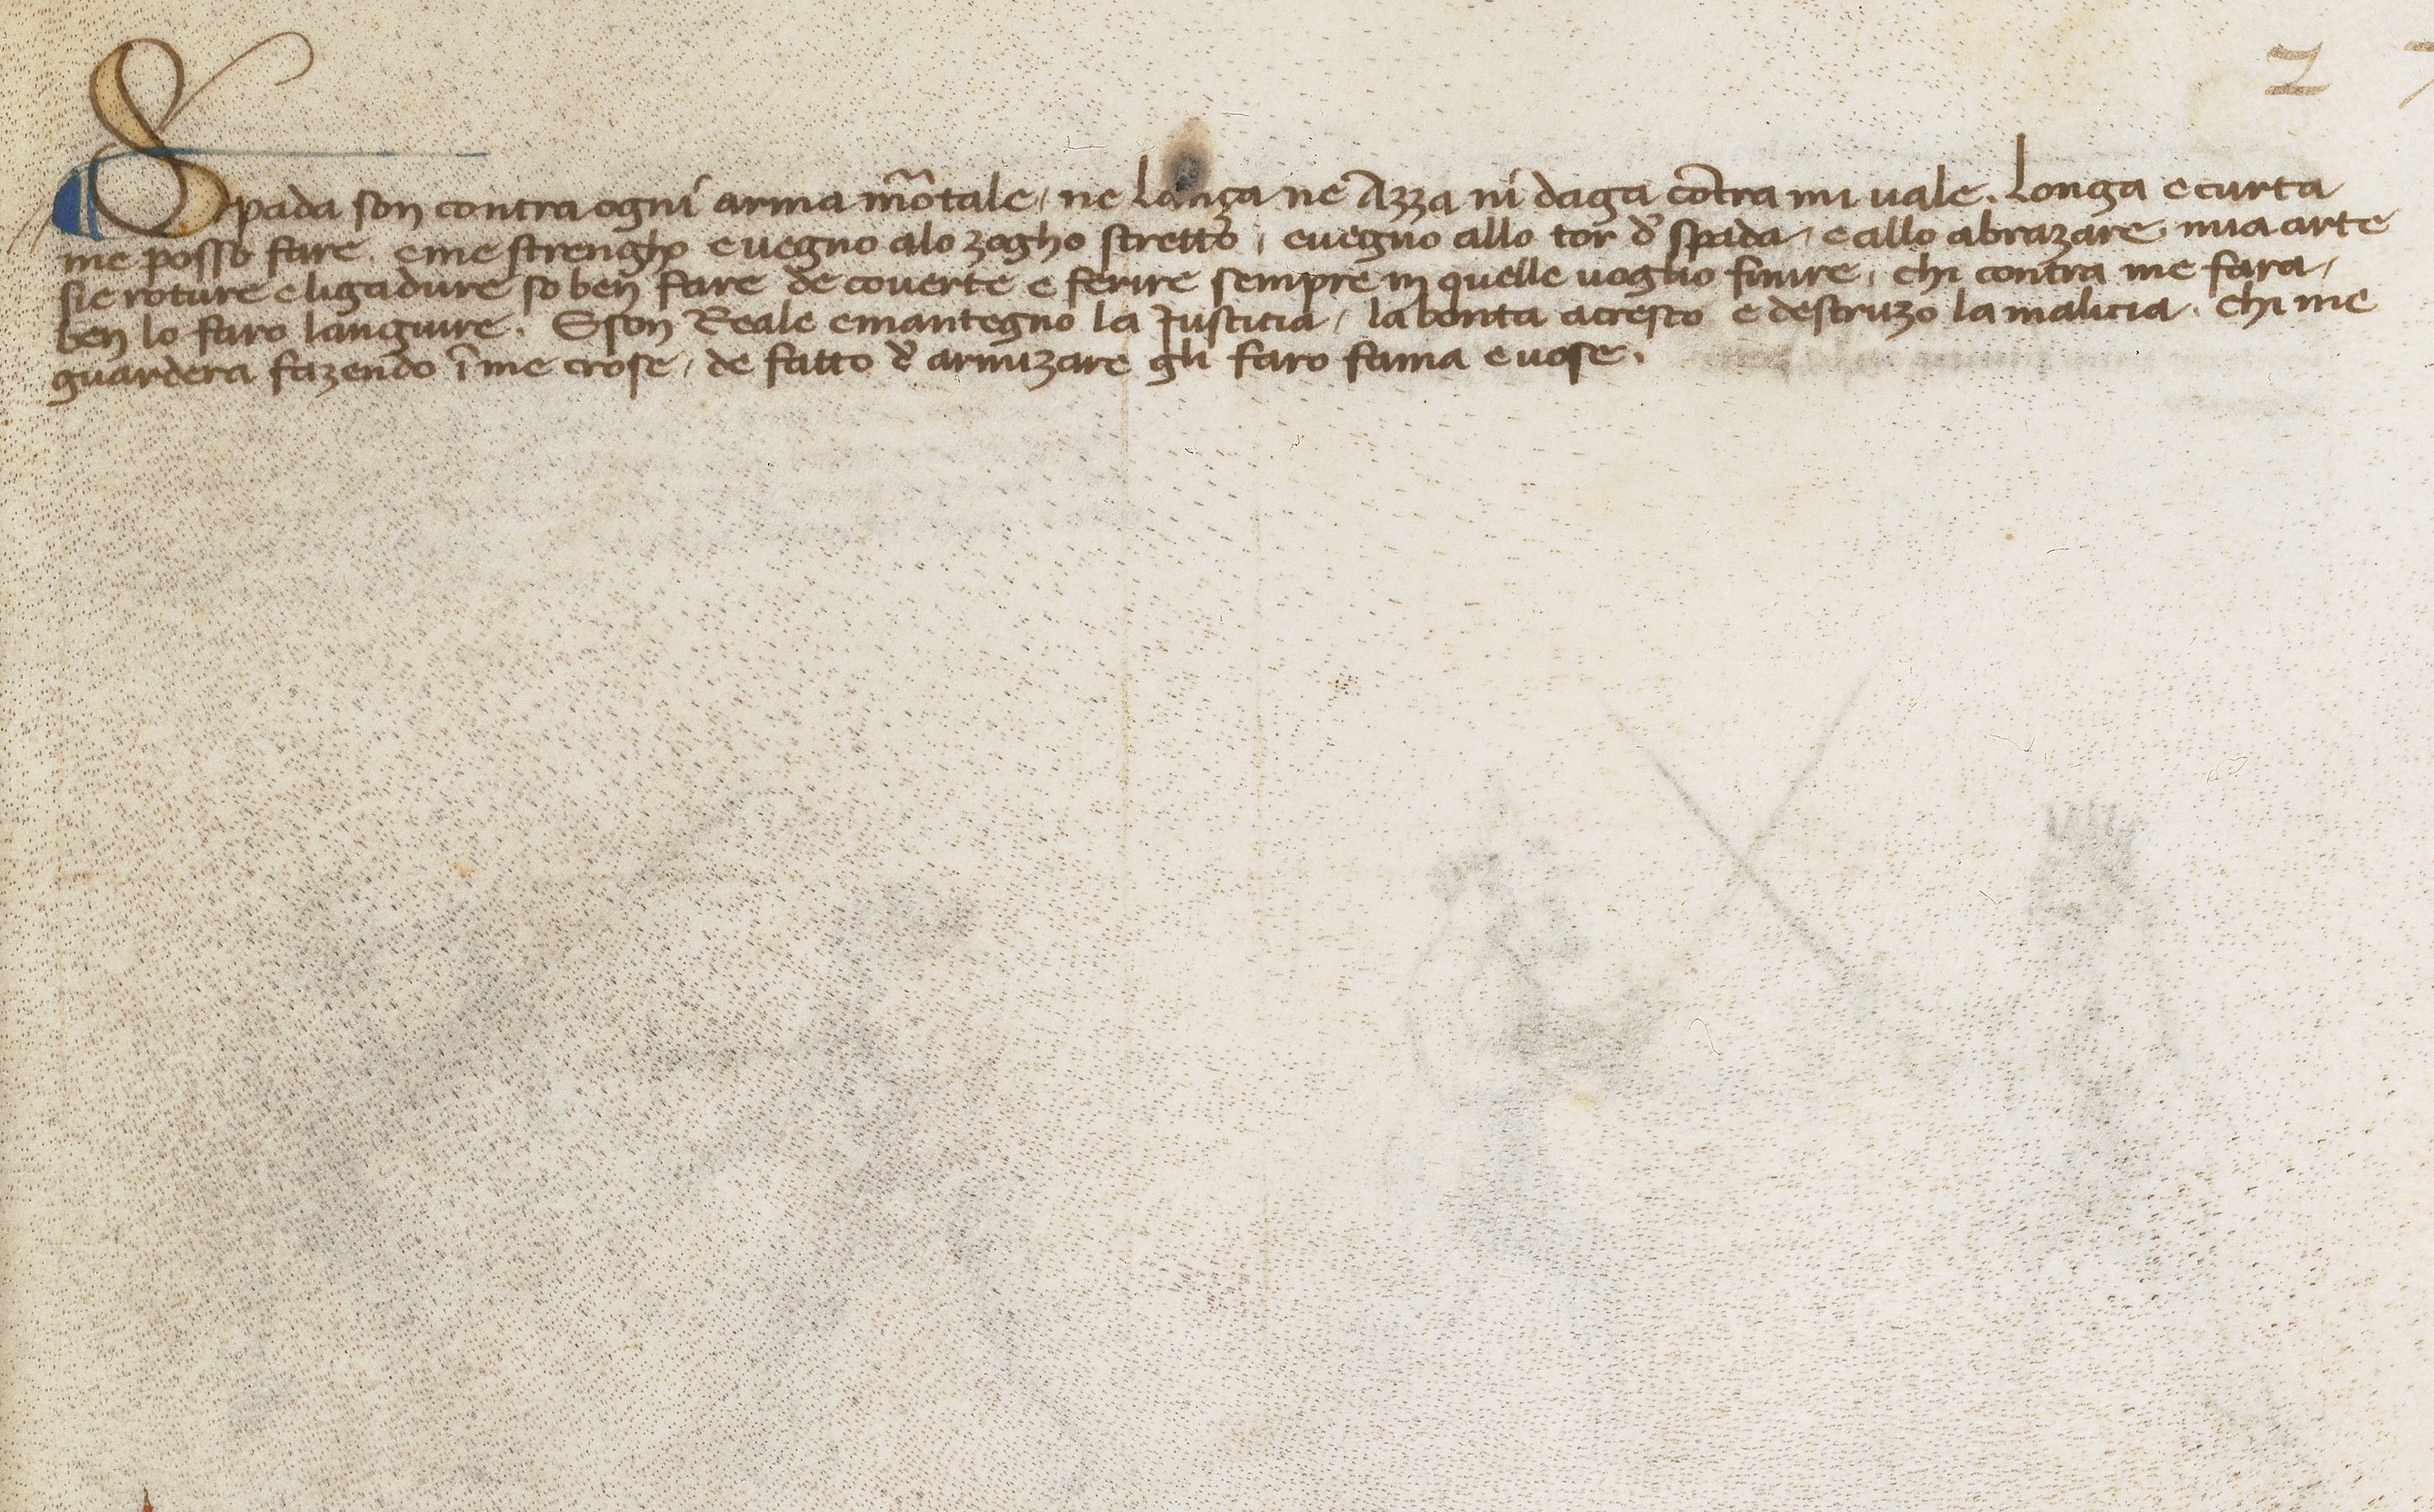 2 7
Spada son contra ogni arma mōtale / ne Lança ne Azza ni daga cōtra mi uale. Longa e curta
me posso fare. e me strengho e uegno alo zogho stretto, e uegno allo tor d' spada / e allo abrazare, mia arte
sie roture e ligadure so ben fare de couerte e ferire sempre in quelle uoglio finire, chi contra me fara /
ben lo faro languire. E son Reale e mantegno la Justicia / la bonta acresco e destruzo la malicia. Chi me
guardera fazendo ī me crose / de fatto d' armizare gli faro fama e uose.